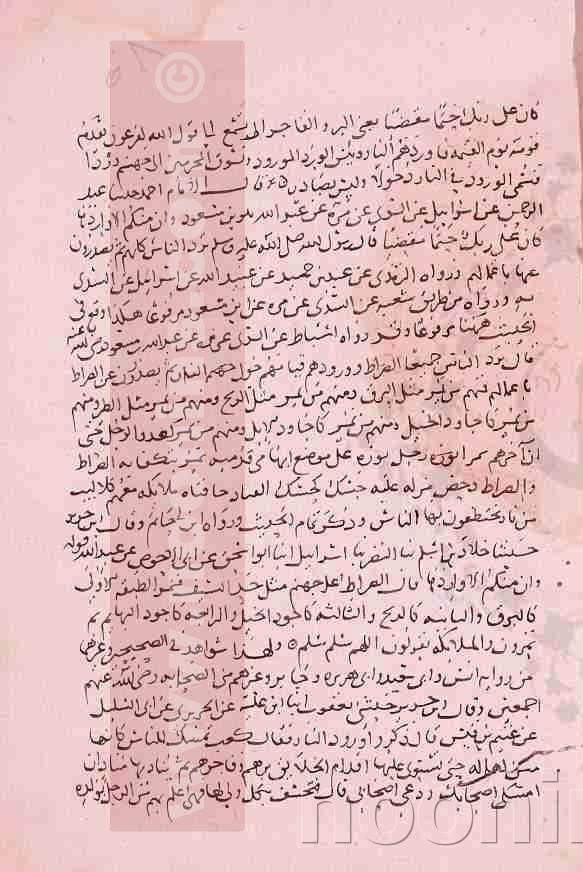 كان على ربك حتما مقضيا يعني البر والفاجر الا تسمع الى قول الله لفرعون يقدم
قومه يوم القيمة فاوردهم النار وبئس الورد المورود ونسوق المجرمين الى جهنم وردا
فسمى الورود في النار دخولا وليس بصادر وقال الامام احمد حدثنا عبد
الرحمن عن اسرائيل عن السدي عن مرة عن عبد الله هو ابن مسعود وان منكم الا واردها
كان على ربك حتما مقضيا قال رسول الله صلى الله عليه وسلم يرد الناس كلهم ثم يصدرون
عنها باعمالهم ورواه الترمذي عن عبد بن حميد عن عبيد الله عن اسرائيل عن السدي
به ورواه من طريق شعبة عن السدي عن مرة عن ابن مسعود موقوفا هكذا وقع في
الحديث ههنا مرفوعا وقد رواه اسباط عن السدي عن مرة عن عبد الله بن مسعود رضي الله عنه
قال يرد الناس جميعا الصراط وورودهم قيامهم حول جهنم ثم يصدرون عن الصراط
باعمالهم فمنهم من يمر مثل البرق ومنهم من يمر مثل الريح ومنهم من يمر مثل الطير ومنهم
من يمر كاجاود الخيل ومنهم من يمر كاجاود الابل ومنهم من يمر كعدو الرجل حتى
ان آخرهم مرا نوره رجل نوره على موضع ابهامي قدميه يمر يتكفا به الصراط
والصراط دحض مزلة عليه حسك كحسك القتاد حافتاه ملائكة معهم كلاليب
من نار يختطفون بها الناس وذكر تمام الحديث ورواه ابن ابي حاتم وقال ابن جرير
حدثنا خلاد بن اسلم ثنا النضر ثنا اسرائيل انبا ابو اسحق عن ابي الاحوص عن عبد الله قوله
وان منكم الا واردها قال الصراط على جهنم مثل حد السيف فتمر الطبقة الاولى
كالبرق والثانية كالريح والثالثة كاجود الخيل والرابعة كاجود البهائم ثم
يمرون والملائكة يقولون اللهم سلم سلم ولهذا شواهد في الصحيحين وغيرهما
من رواية انس وابي سعيد وابي هريرة وجابر وغيرهم من الصحابة رضي الله عنهم
اجمعين وقال ابن جرير حدثني يعقوب انبا ابن علية عن الجريري عن ابي السليل
عن غنيم بن قيس قال ذكروا ورود النار فقال كعب تمسك للناس كانها
متن اهالة حتى تستوي عليها اقدام الخلائق برهم وفاجرهم ثم يناديها مناد ان
امسكي اصحابك ودعي اصحابي قال فتخسف بكل ولي لها وهي اعلم بهم من الرجل بولده
noonli